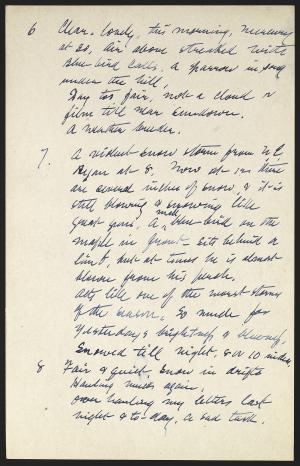 6 Clear, lovely, this morning, mercury
at 20, air above streaked with
blue-bird calls, a sparrow in song
under the hill,
Day too fair, not a cloud or
film till near sundown.
A weather breeder.
7. A violent snow storm from N.E.
Began at 8. Now at 12 there
are several inches of snow, & it is
still blowing & snowing like
great guns, A male blue-bird in the
maple in front sits behind a
limb, but at times he is almost
blown from his perch.
Acts like one of the worst storms
of the season, So much for
yesterdays brightness & blueness,
Snowed till night, 8 or 10 inches.
8 Fair & quiet, snow in drifts
Hauling muck again,
Over hauling my letters last
night & to-day, a sad task.